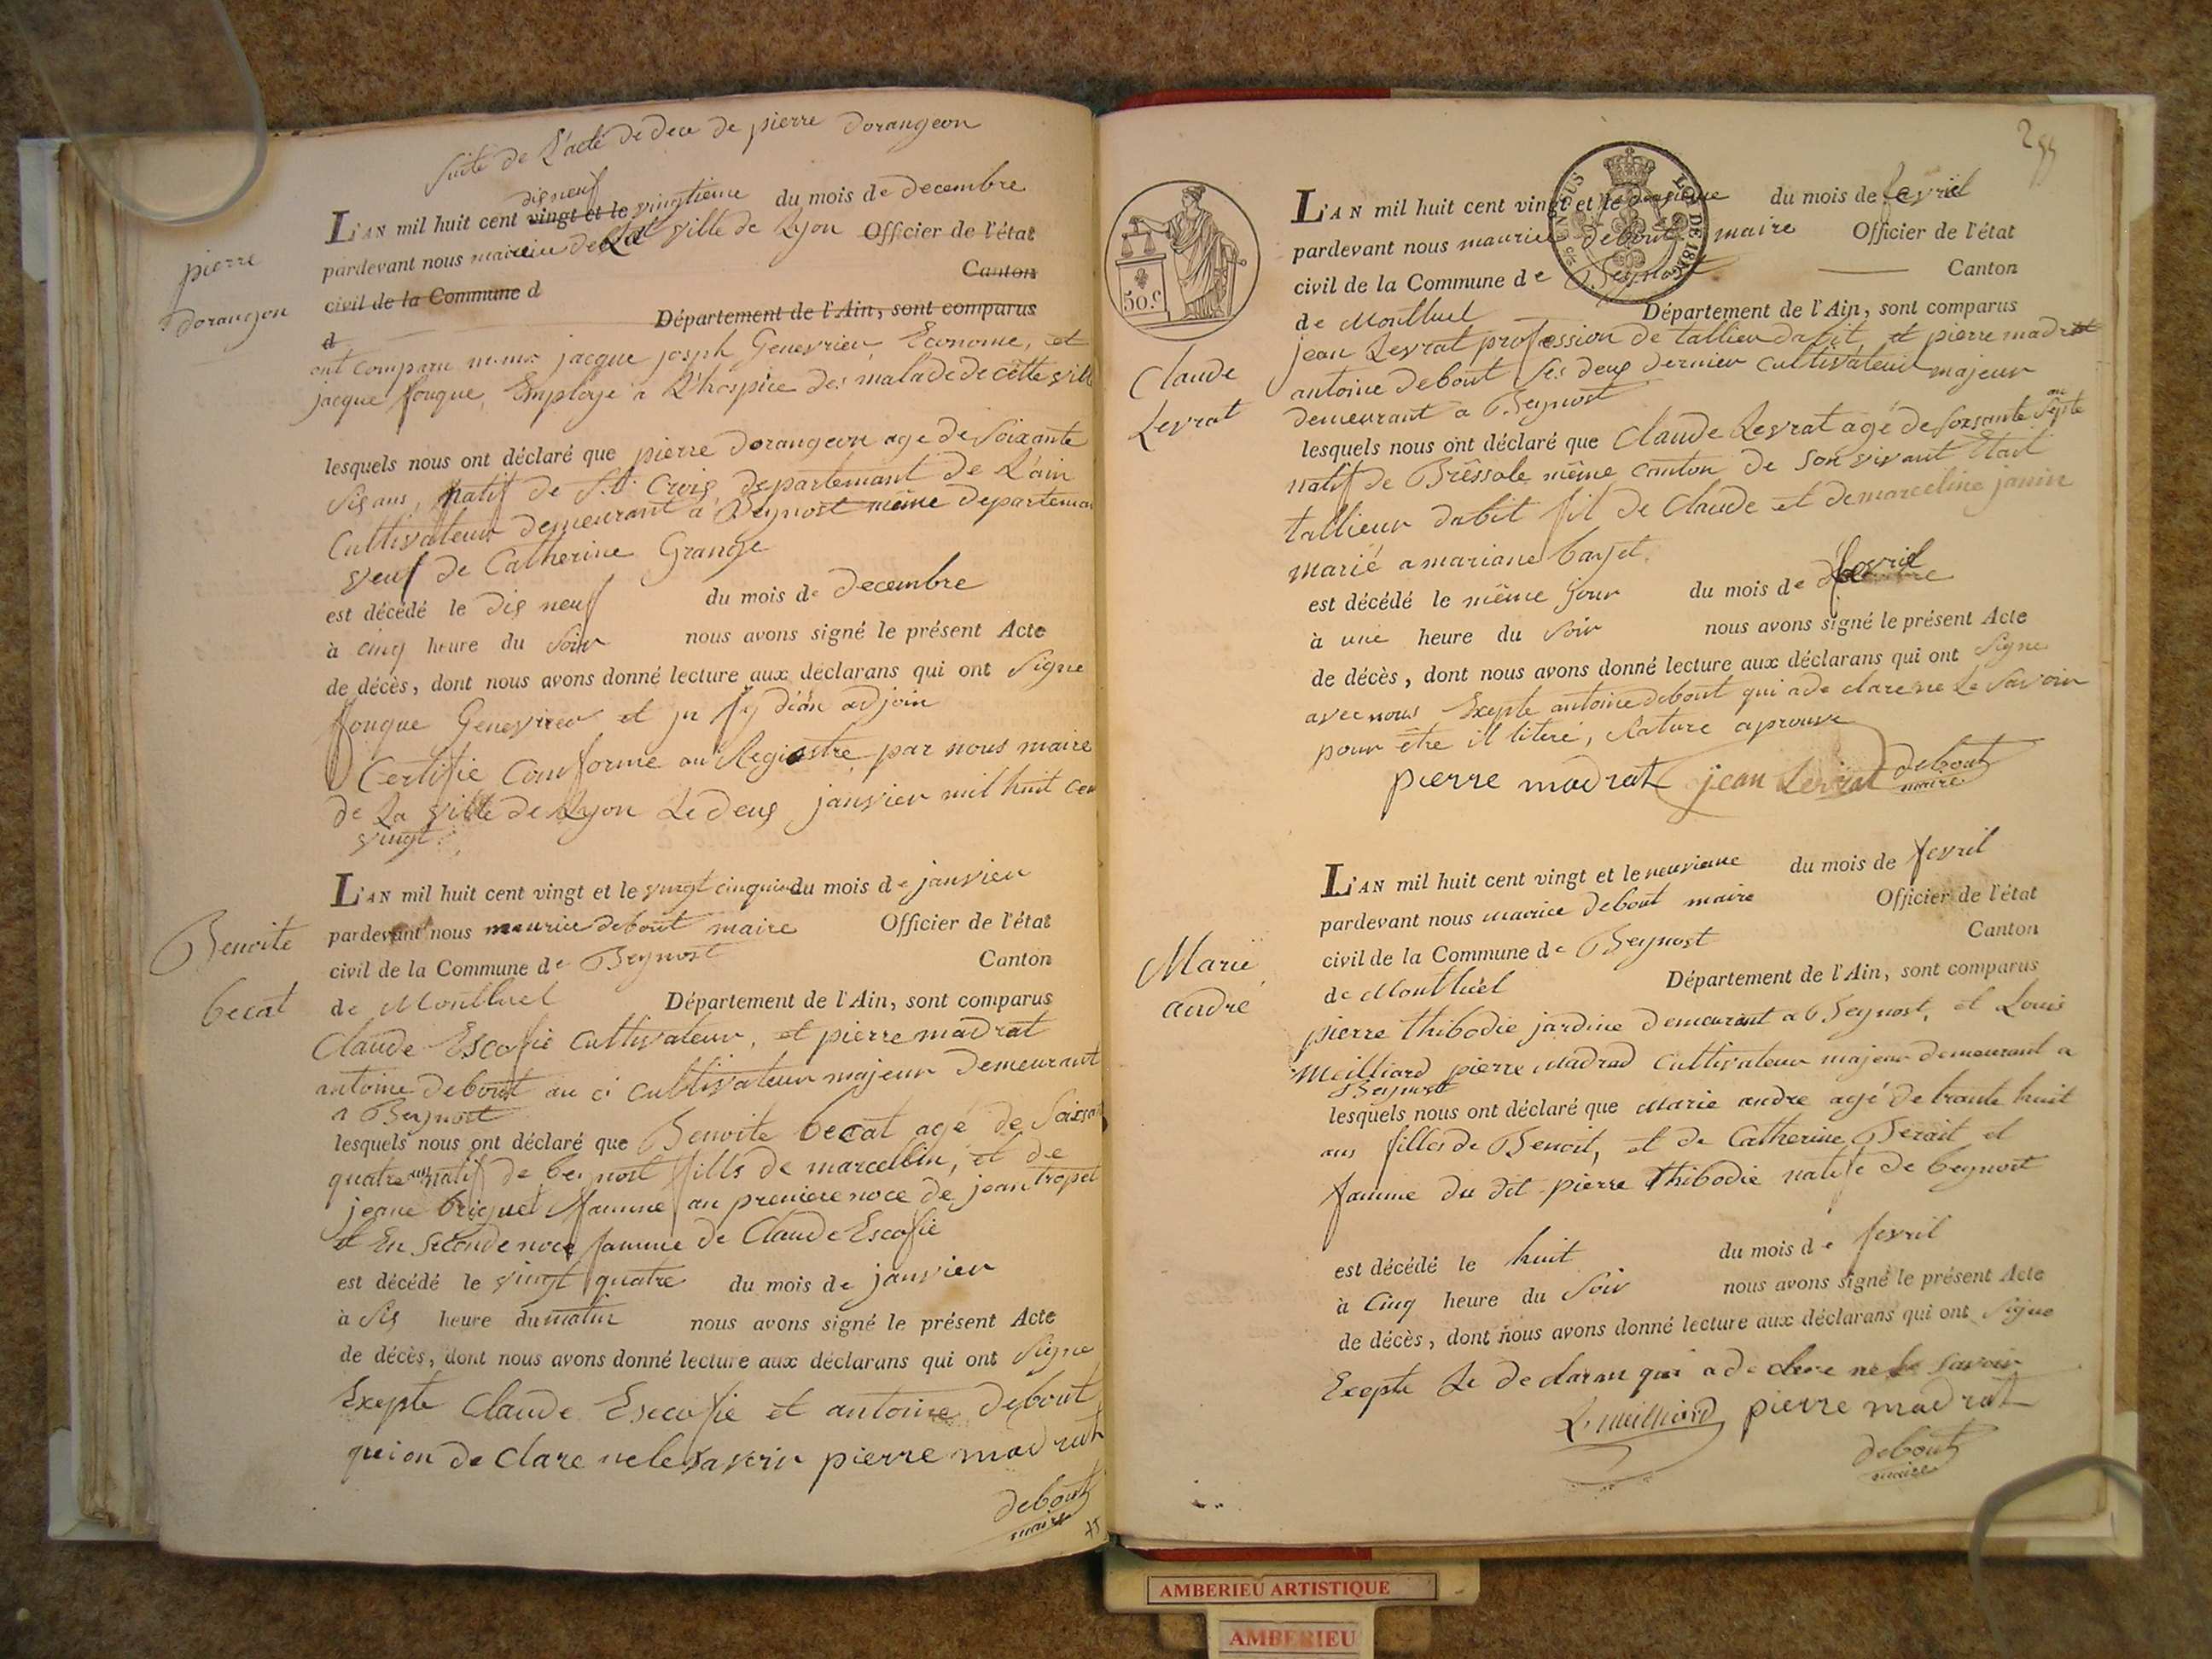 Suite de L'acte de dece de pierre dorangeon
pierre
dorangeon
dis neuf
L'AN mil huit cent vingt et le vingtieme du mois de decembre
pardevant nous mairie de La ville de Lyon Officier de l'état
civil de la Commune d Canton
d Département de l'Ain, sont comparus
ont comparu jacque josph Genevrier, Econome, et
jacque fouque, Employé a L'hospice des malade de cette ville
lesquels nous ont déclaré que pierre dorangeon age de soixante
sis ans, natif de St. Crois, departemant de L'ain
Cultivateur demeurant a Beynost même departeman
veuf de Catherine Grange
est décédé le dis neuf du mois de decembre
à cinq heure du soir nous avons signé le présent Acte
de décès, dont nous avons donné lecture aux déclarans qui ont signe
fouque Genevrier et adjoin
Certifie Conforme au Registre par nous maire
de La ville de Lyon Le deus janvier mil huit cen
vingt.
Benoite
becat
L'AN mil huit cent vingt et le vingt cinquie du mois de janvier
pardevant nous maurice debout maire Officier de l'état
civil de la Commune de Beynost Canton
de Montluel Département de l'Ain, sont comparus
Claude Escofie Cultivateur, et pierre madrat
antoine debout au ci cultivateur majeur demeurant
a Beynost
lesquels nous ont déclaré que Benoite becat agé de soissan
quatre ans natif de beynost fills de marcellin, et de
jeane briquet famme an premiere noce de jean tropet
et En seconde noce famme de Claude Escofie
est décédé le vingt quatre du mois de janvier
à sis heure du matin nous avons signé le présent Acte
de décès, dont nous avons donné lecture aux déclarans qui ont signe
Exepte Claude Escofie et antoine debout
qui on de clare ne le savoir pierre madrat
debout
maire
299
50.c
LOI DE 1816
Claude
Levrat
L'AN mil huit cent vingt et le deusieme du mois de fevril
pardevant nous maurice debout maire Officier de l'état
civil de la Commune de Beynost Canton
de Montluel Département de l'Ain, sont comparus
jean Levrat profession de tallieu dabit et pierre madrat
antoine debout les deus dernier cultivateur majeur
demeurant a Beynost
lesquels nous ont déclaré que Claude Levrat agé de soisante septe
an
natif de Bressole même canton de son vivant Etait
tallieur dabit fil de Claude et de marceline janin
marié a mariane barjet.
est décédé le même jour du mois de fevril
à une heure du soir nous avons signé le présent Acte
de décès, dont nous avons donné lecture aux déclarans qui ont signe
avec nous Exepte antoine debout qui a de clare ne le savoir
pour être il litéré, Rature aprouve
pierre madrat jean Levrat debout
maire
Marie
andré
L'AN mil huit cent vingt et le neuvieme du mois de fevril
pardevant nous maurice debout maire Officier de l'état
civil de la Commune de Beynost Canton
de Montluel Département de l'Ain, sont comparus
pierre thibodie jardine demeurant a Beynost, et Louis
Meilliard pierre Madrad cultivateur majeur demeurant a
Beynost
lesquels nous ont déclaré que Marie andre agé de trante huit
ans filles de Benoit, et de Catherine Berait et
famme du dit pierre thibodie natife de beynost
est décédé le huit du mois de fevril
à cinq heure du soir nous avons signé le présent Acte
de décès, dont nous avons donné lecture aux déclarans qui ont signe
Exepte Le declaran qui a de clere ne le savoir
L. meilliard pierre madrat
debout
maire
AMBERIEU ARTISTIQUE
AMBERIEU